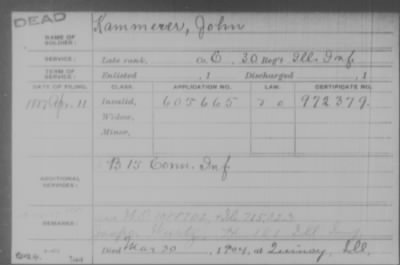 DEAD
NAME OF SOLDIER: Kammerer, John
SERVICE: Late rank, Co. C, 20 Reg't Ill. Inf.
TERM OF SERVICE: Enlisted , 1 Discharged , 1
DATE OF FILING. CLASS. APPLICATION NO. LAW. CERTIFICATE NO.
1887 Apr. 11 Invalid, 605665 972379.
Widow,
Minor,
ADDITIONAL SERVICES: B 15 Conn. Inf
REMARKS:
Ill Inf.
Died Mar 30, 1904, at Quincy, Ill.